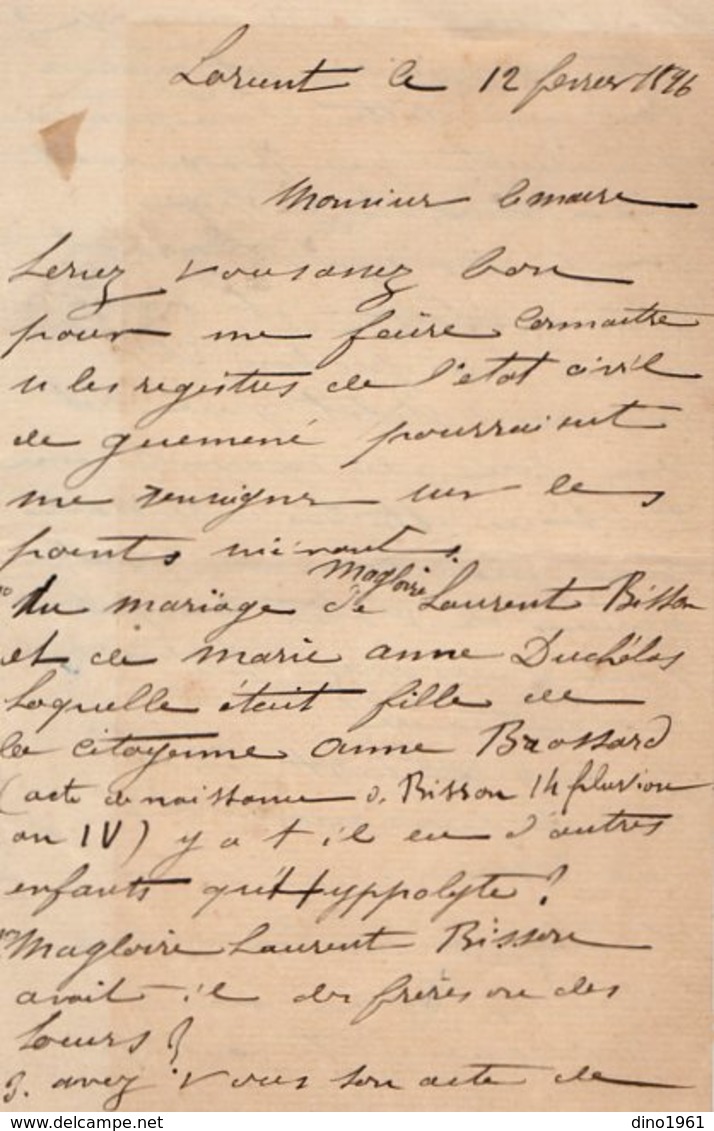 Lorient le 12 fevrier 1896
Monsieur le maire
Seriez vous assez bon
pour me faire connaitre
si les registres de l'etat civil
de guemené pourraient
me renseigner sur les
points suivants.
1o du mariage de Magloire Laurent Bisson
et de marie anne Duchélas
laquelle était fille de
la citoyenne anne Brossard
(acte de naissance d. Bisson 14 pluviose
an IV) y a t il eu d'autres
enfants qu'Hyppolyte?
Magloire Laurent Bisson
avait-il des frères ou des
soeurs?
3. avez vous son acte de
delcampe.net
dino1961